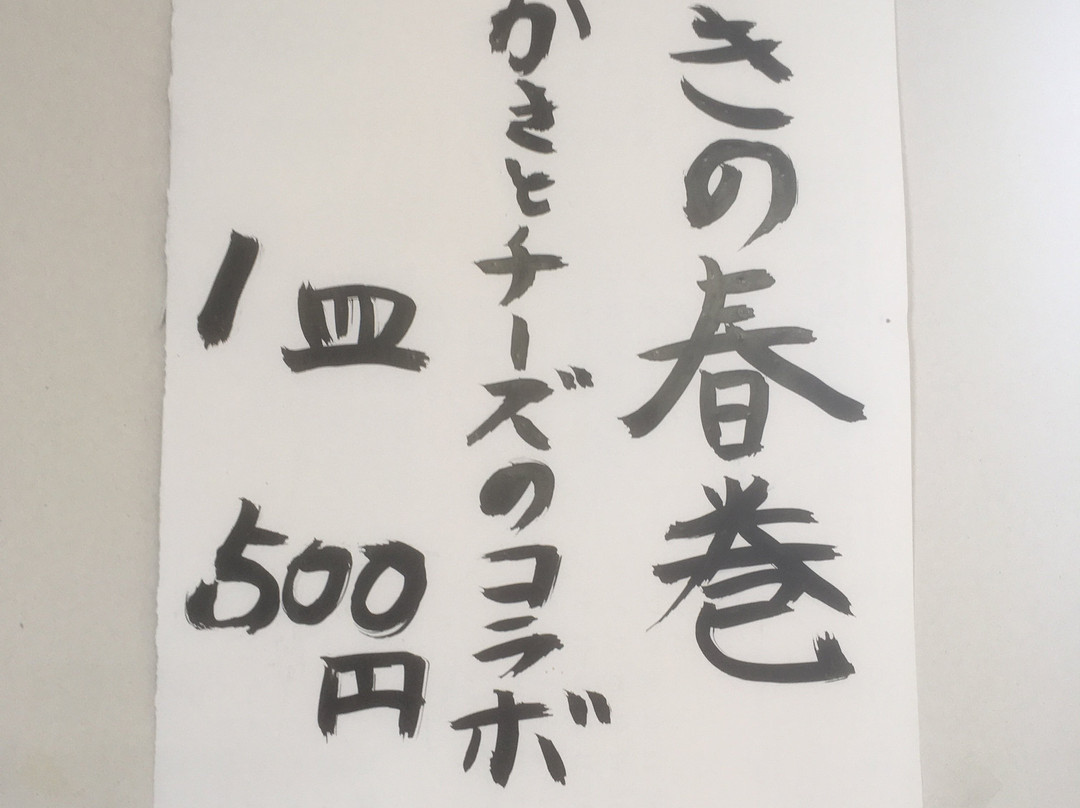 きの春巻
かさとチーズのコラボ
1皿
500円